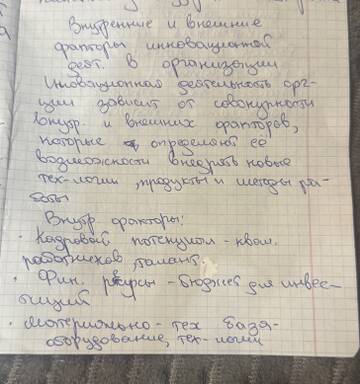 Внутренние и внешние
факторы инновационной
деят. в организации
Инновационная деятельность орг-
ции зависит от совокупности
внутр. и внешних факторов,
которые определяют её
возможности внедрять новые
тех-логии, продукты и методы ра-
боты
Внутр. факторы:
· Кадровой потенциал - квал.
работников, талант.
· Фин. ресурсы - бюджет для инвес-
тиций
· Материально-тех база-
оборудование, тех-логии